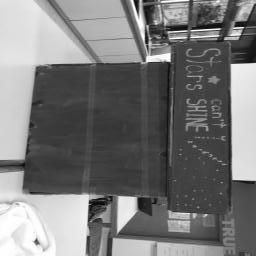 Stars can't
SHINE
TRUE